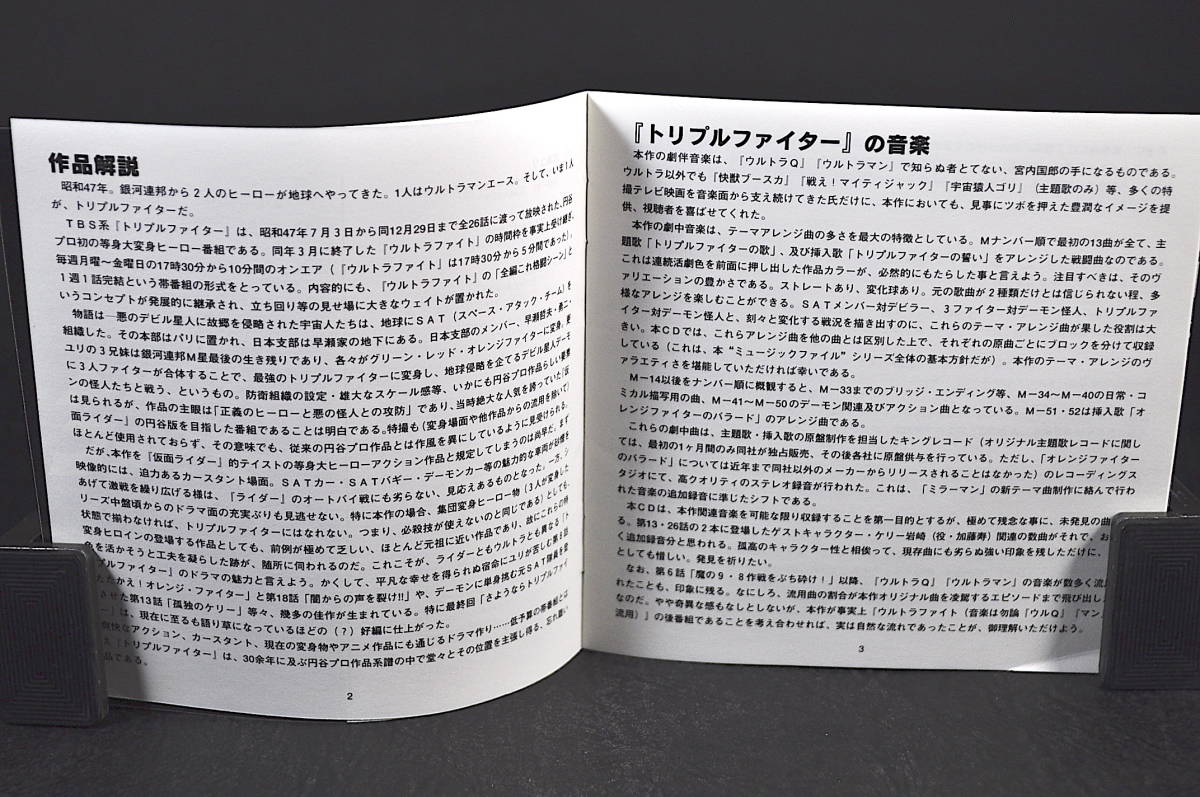 作品解説
昭和47年。銀河連邦から2人のヒーローが地球へやってきた。1人はウルトラマンエース。そして、いま1人
が、トリプルファイターだ。
TBS系『トリプルファイター』は、昭和47年7月3日から同12月29日まで全26話に渡って放映された、円谷
プロ初の等身大変身ヒーロー番組である。同年3月に終了した『ウルトラファイト』の時間枠を事実上受け継ぎ、
毎週月曜〜金曜日の17時30分から10分間のオンエア（『ウルトラファイト』は17時30分から5分間であった）。
1週1話完結という帯番組の形式をとっている。内容的にも、『ウルトラファイト』の「全編これ格闘シーン」と
いうコンセプトが発展的に継承され、立ち回り等の見せ場に大きなウェイトが置かれた。
物語は―悪のデビル星人に故郷を侵略された宇宙人たちは、地球にSAT（スペース・アタック・チーム）を
組織した。その本部はパリに置かれ、日本支部は早瀬家の地下にある。日本支部のメンバー、早瀬哲夫・勇二・
ユリの3兄妹は銀河連邦M星最後の生き残りであり、各々がグリーン・レッド・オレンジファイターに変身、更
に3人ファイターが合体することで、最強のトリプルファイターに変身し、地球侵略を企てるデビル星人デーモ
ンの怪人たちと戦う、というもの。防衛組織の設定・雄大なスケール感等、いかにも円谷プロ作品らしい要素
は見られるが、作品の主眼は「正義のヒーローと悪の怪人との攻防」であり、当時絶大な人気を誇っていた『仮
面ライダー』の円谷版を目指した番組であることは明白である。特撮も（変身場面や他作品からの流用を除いて）
ほとんど使用されておらず、その意味でも、従来の円谷プロ作品とは作風を異にしているように見受けられる。
だが、本作を『仮面ライダー』的テイストの等身大ヒーローアクション作品と規定してしまうのは尚早だ。まず
映像的には、迫力あるカースタント場面。SATカー・SATバギー・デーモンカー等の魅力的な車両が砂煙を
あげて激戦を繰り広げる様は、『ライダー』のオートバイ戦にも劣らない、見応えあるものとなった。一方、シ
リーズ中盤頃からのドラマ面の充実ぶりも見逃せない。特に本作の場合、集団変身ヒーロー物（3人が変身した
状態で揃わなければ、トリプルファイターにはなれない。つまり、必殺技が使えないのと同じである）としても、
変身ヒロインの登場する作品としても、前例が極めて乏しい、ほとんど元祖に近い作品であり、故にこれらの特
色を活かそうと工夫を凝らした跡が、随所に伺われるのだ。これこそが、ライダーともウルトラとも異なる『ト
リプルファイター』のドラマの魅力と言えよう。かくして、平凡な幸せを得られぬ宿命にユリが苦しむ第8話
「たたかえ！オレンジ・ファイター」と第18話「闇からの声を裂け!!」や、デーモンに単身挑む元SAT隊員を登
させた第13話「孤独のケリー」等々、幾多の佳作が生まれている。特に最終回「さようならトリプルファイ
ー」は、現在に至るも語り草になっているほどの（？）好編に仕上がった。
快なアクション、カースタント、現在の変身物やアニメ作品にも通じるドラマ作り……低予算の帯番組とは
え『トリプルファイター』は、30余年に及ぶ円谷プロ作品系譜の中で堂々とその位置を主張し得る、忘れ難い
品である。
2
『トリプルファイター』の音楽
本作の劇伴音楽は、『ウルトラQ』『ウルトラマン』で知らぬ者とてない、宮内国郎の手になるものである。
ウルトラ以外でも『快獣ブースカ』『戦え！マイティジャック』『宇宙猿人ゴリ』（主題歌のみ）等、多くの特
撮テレビ映画を音楽面から支え続けてきた氏だけに、本作においても、見事にツボを押えた豊潤なイメージを提
供、視聴者を喜ばせてくれた。
本作の劇中音楽は、テーマアレンジ曲の多さを最大の特徴としている。Mナンバー順で最初の13曲が全て、主
題歌「トリプルファイターの歌」、及び挿入歌「トリプルファイターの誓い」をアレンジした戦闘曲なのである。
これは連続活劇色を前面に押し出した作品カラーが、必然的にもたらした事と言えよう。注目すべきは、そのヴ
ァリエーションの豊かさである。ストレートあり、変化球あり。元の歌曲が2種類だけとは信じられない程、多
様なアレンジを楽しむことができる。SATメンバー対デビラー、3ファイター対デーモン怪人、トリプルファ
イター対デーモン怪人と、刻々と変化する戦況を描き出すのに、これらのテーマ・アレンジ曲が果した役割は大
きい。本CDでは、これらアレンジ曲を他の曲とは区別した上で、それぞれの原曲ごとにブロックを分けて収録
している（これは、本“ミュージックファイル”シリーズ全体の基本方針だが）。本作のテーマ・アレンジのヴ
ァラエティさを堪能していただければ幸いである。
M―14以後をナンバー順に概観すると、M―33までのブリッジ・エンディング等、M―34〜M―40の日常・コ
ミカル描写用の曲、M―41〜M―50のデーモン関連及びアクション曲となっている。M―51・52は挿入歌「オ
レンジファイターのバラード」のアレンジ曲である。
これらの劇中曲は、主題歌・挿入歌の原盤制作を担当したキングレコード（オリジナル主題歌レコードに関し
ては、最初の1ヶ月間のみ同社が独占販売、その後各社に原盤供与を行っている。ただし、「オレンジファイター
のバラード」については近年まで同社以外のメーカーからリリースされることはなかった）のレコーディングス
タジオにて、高クオリティのステレオ録音が行われた。これは、『ミラーマン』の新テーマ曲制作に絡んで行わ
れた音楽の追加録音に準じたシフトである。
本CDは、本作関連音楽を可能な限り収録することを第一目的とするが、極めて残念な事に、未発見の曲
る。第13・26話の2本に登場したゲストキャラクター・ケリー岩崎（役・加藤寿）関連の数曲がそれで、お
く追加録音分と思われる。孤高のキャラクター性と相俟って、現存曲にも劣らぬ強い印象を残しただけに、
としても惜しい。発見を祈りたい。
なお、第6話「魔の9・8作戦をぶち砕け！」以降、『ウルトラQ』『ウルトラマン』の音楽が数多く流
れたことも、印象に残る。なにしろ、流用曲の割合が本作オリジナル曲を凌駕するエピソードまで飛び出し
なのだ。やや奇異な感もなしとしないが、本作が事実上『ウルトラファイト（音楽は勿論『ウルQ』『マン』
流用）』の後番組であることを考え合わせれば、実は自然な流れであったことが、御理解いただけよう。
3